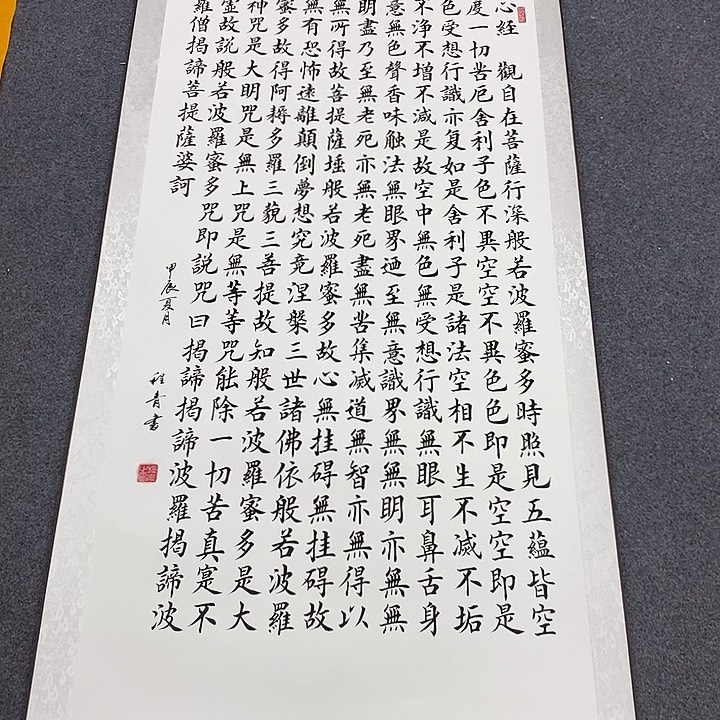 心經 觀自在菩薩行深般若波羅蜜多時照見五蘊皆空
度一切苦厄舍利子色不異空空不異色色即是空空即是
色受想行識亦复如是舍利子是諸法空相不生不滅不垢
不净不增不减是故空中無色無受想行識無眼耳鼻舌身
意無色聲香味触法無眼界迺至無意識界無無明亦無無
明盡乃至無老死亦無老死盡無苦集滅道無智亦無得以
無所得故菩提薩埵般若波羅蜜多故心無挂碍無挂碍故
無有恐怖遠離顛倒夢想究竟涅槃三世諸佛依般若波羅
蜜多故得阿耨多羅三藐三菩提故知般若波羅蜜多是大
神咒是大明咒是無上咒是無等等咒能除一切苦真寔不
虛故說般若波羅蜜多咒即說咒曰揭諦揭諦波羅揭諦波
羅僧揭諦菩提薩婆訶
甲辰夏月
程青書